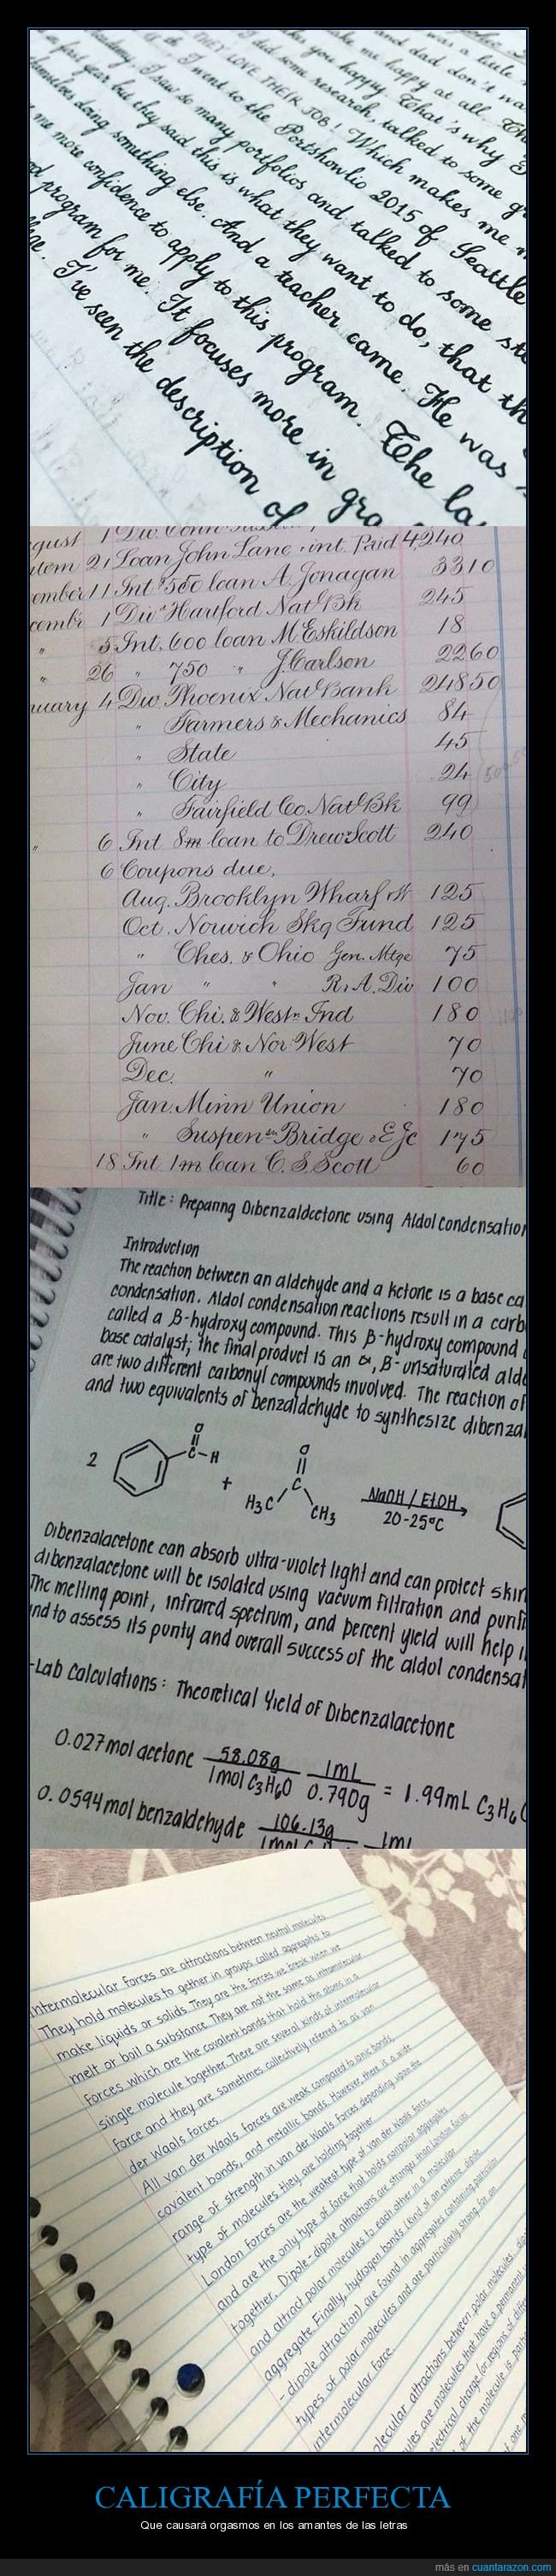 was a little
and dad don't wa
me happy at all. Th
kes you happy. That's why I
did some research, talked to some gr
THEY LOVE THEIR JOB! Which makes me m
I went to the Portshowlio 2015 of Seattle
I saw so many portfolios and talked to some stu
first year but they said this is what they want to do, that th
themselves doing something else. And a teacher came. He was
me more confidence to apply to this program. The la
d program for me. It focuses more in gra
llege. I've seen the description of
gust 1 Div.
tem 21 Loan John Lane & int. Paid 4,240
ember 11 Int $550 loan A. Jonagan 3310
cembr 1 Div Hartford Nat'l Bk 245
" 5 Int. 600 loan M Eskildson 18
" 26 " 750 " J. Carlson 2260
nuary 4 Div Phoenix Nat'l Bank 24850
" Farmers & Mechanics 84
" State 45
" City 24
" Fairfield Co. Nat'l Bk 99
" 6 Int 8m loan to Drew & Scott 240
6 Coupons due,
Aug. Brooklyn Wharf 125
Oct. Norwich Skg Fund 125
" Ches. & Ohio Gen. Mtge 75
Jan " " R. & A. Div 100
Nov. Chi. & Westn Ind 180
June Chi & Nor West 70
Dec. " 70
Jan. Minn Union 180
" Suspen Bridge & 175
18 Int 1m loan C. S. Scott 60
Title: Preparing Dibenzaldcetone using Aldol condensation
Introduction
The reaction between an aldehyde and a ketone is a base ca
condensation. Aldol condensation reactions result in a carb
called a β-hydroxy compound. This β-hydroxy compound
base catalyst; the final product is an α, β-unsaturated alde
are two different carbonyl compounds involved. The reaction of
and two equivalents of benzaldehyde to synthesize dibenza
2
O
C-H
+
O
C
H3C CH3
NaOH / EtOH
20-25°C
Dibenzalacetone can absorb ultra-violet light and can protect skin
dibenzalacetone will be isolated using vacuum filtration and purifi
The melting point, infrared spectrum, and percent yield will help i
and to assess its purity and overall success of the aldol condensat
-Lab Calculations: Theoretical Yield of Dibenzalacetone
0.027mol acetone 58.08g 1mL
1mol C3H6O 0.790g = 1.99mL C3H6O
0.0594mol benzaldehyde 106.13g 1mL
intermolecular forces are attractions between neutral molecules.
They hold molecules to gether in groups called aggregates to
make liquids or solids. They are the forces we break when we
melt or boil a substance. They are not the same as intramolecular
forces which are the covalent bonds that hold the atoms in a
single molecule together. There are several kinds of intermolecular
force and they are sometimes collectively referred to as van
der Waals forces.
All van der Waals forces are weak compared to ionic bonds,
covalent bonds, and metallic bonds. However, there is a wide
range of strength in van der Waals forces depending upon the
type of molecules they are holding together.
London forces are the weakest type of van der Waals force,
and are the only type of force that holds nonpolar aggregates
together. Dipole-dipole attractions are stronger than London forces
and attract polar molecules to each other in a molecular
aggregate. Finally, hydrogen bonds (kind of an extreme dipole
- dipole attraction) are found in aggregates containing particular
types of polar molecules and are particularly strong for an
intermolecular force.
olecular attractions between polar molecules - dip
ules are molecules that have a permanent
electrical charge (or regions of diffe
of the molecule is
CALIGRAFÍA PERFECTA
Que causará orgasmos en los amantes de las letras
más en cuantarazon.com